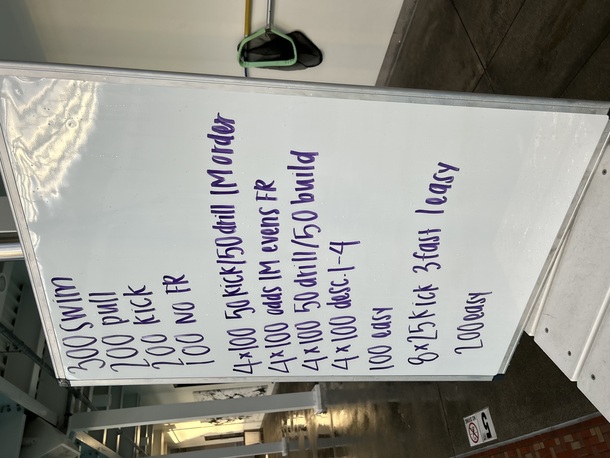 300 SWIM
200 pull
200 kick
100 NO FR
4x100 50kick/50drill IM order
4x100 odds IM evens FR
4x100 50 drill/50 build
4x100 desc. 1-4
100 easy
8x25 kick 3fast 1easy
200 easy